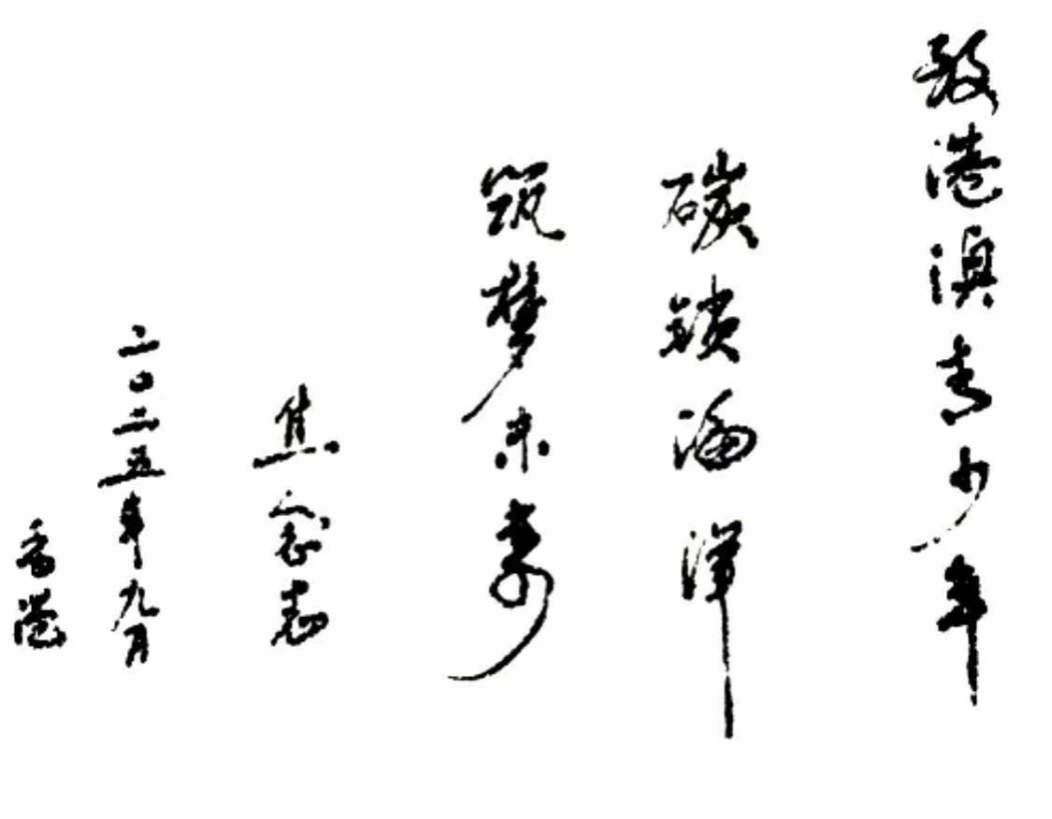 致港澳青少年
碳锁海洋
筑梦未来
焦念志
二〇二五年九月
香港